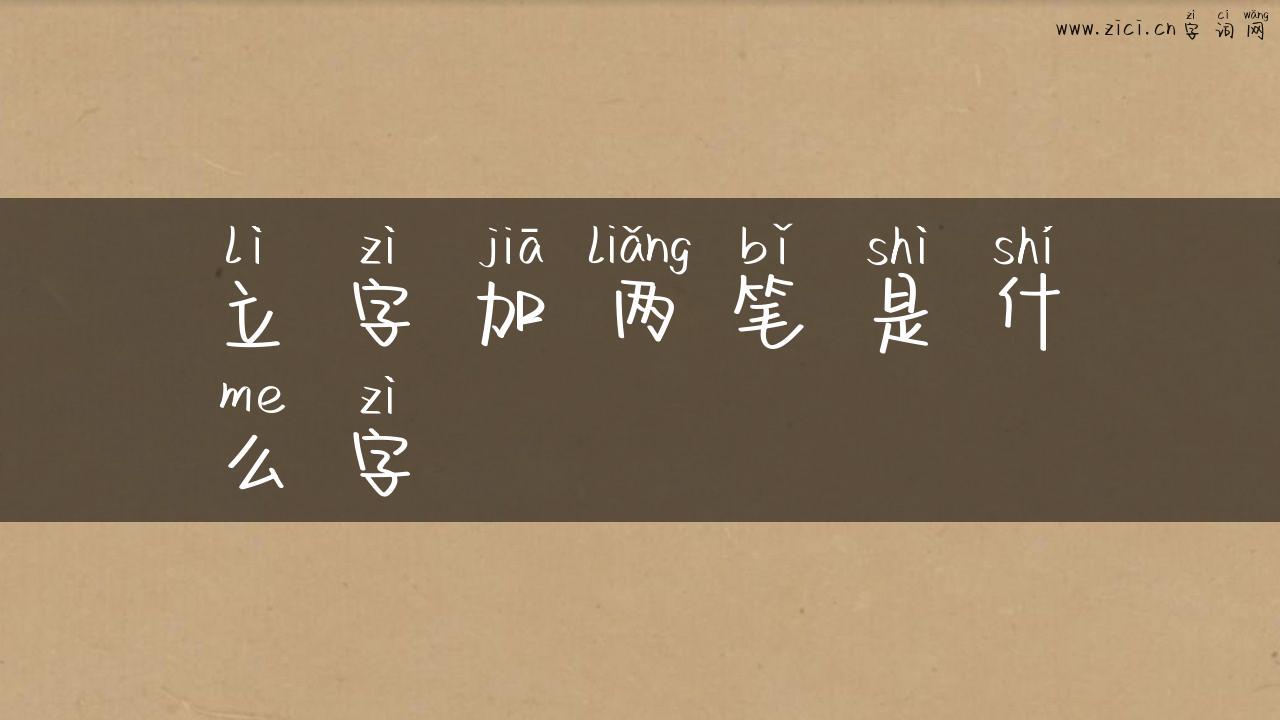 zì cí wǎng
www.zici.cn 字 词 网
lì zì jiā liǎng bǐ shì shí
立 字 加 两 笔 是 什
me zì
么 字